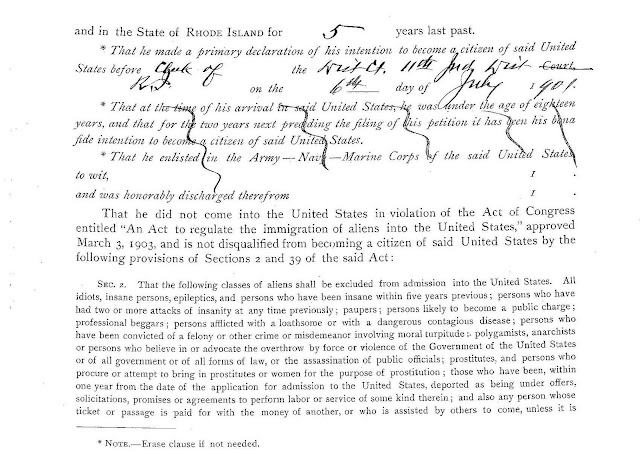 and in the State of RHODE ISLAND for 5 years last past.
* That he made a primary declaration of his intention to become a citizen of said United
States before Clerk of the Dist Ct. 11th Judl Dist Court
R.I. on the 6th day of July 1901.
* That at the time of his arrival in said United States, he was under the age of eighteen
years, and that for the two years next preceding the filing of this petition it has been his bona
fide intention to become a citizen of said United States.
* That he enlisted in the Army—Navy—Marine Corps of the said United States
to wit, 1 .
and was honorably discharged therefrom 1 .
That he did not come into the United States in violation of the Act of Congress
entitled "An Act to regulate the immigration of aliens into the United States," approved
March 3, 1903, and is not disqualified from becoming a citizen of said United States by the
following provisions of Sections 2 and 39 of the said Act:
SEC. 2. That the following classes of aliens shall be excluded from admission into the United States. All
idiots, insane persons, epileptics, and persons who have been insane within five years previous; persons who have
had two or more attacks of insanity at any time previously; paupers; persons likely to become a public charge;
professional beggars; persons afflicted with a loathsome or with a dangerous contagious disease; persons who
have been convicted of a felony or other crime or misdemeanor involving moral turpitude; polygamists, anarchists
or persons who believe in or advocate the overthrow by force or violence of the Government of the United States
or of all government or of all forms of law, or the assassination of public officials; prostitutes, and persons who
procure or attempt to bring in prostitutes or women for the purpose of prostitution; those who have been, within
one year from the date of the application for admission to the United States, deported as being under offers,
solicitations, promises or agreements to perform labor or service of some kind therein; and also any person whose
ticket or passage is paid for with the money of another, or who is assisted by others to come, unless it is
* NOTE.—Erase clause if not needed.